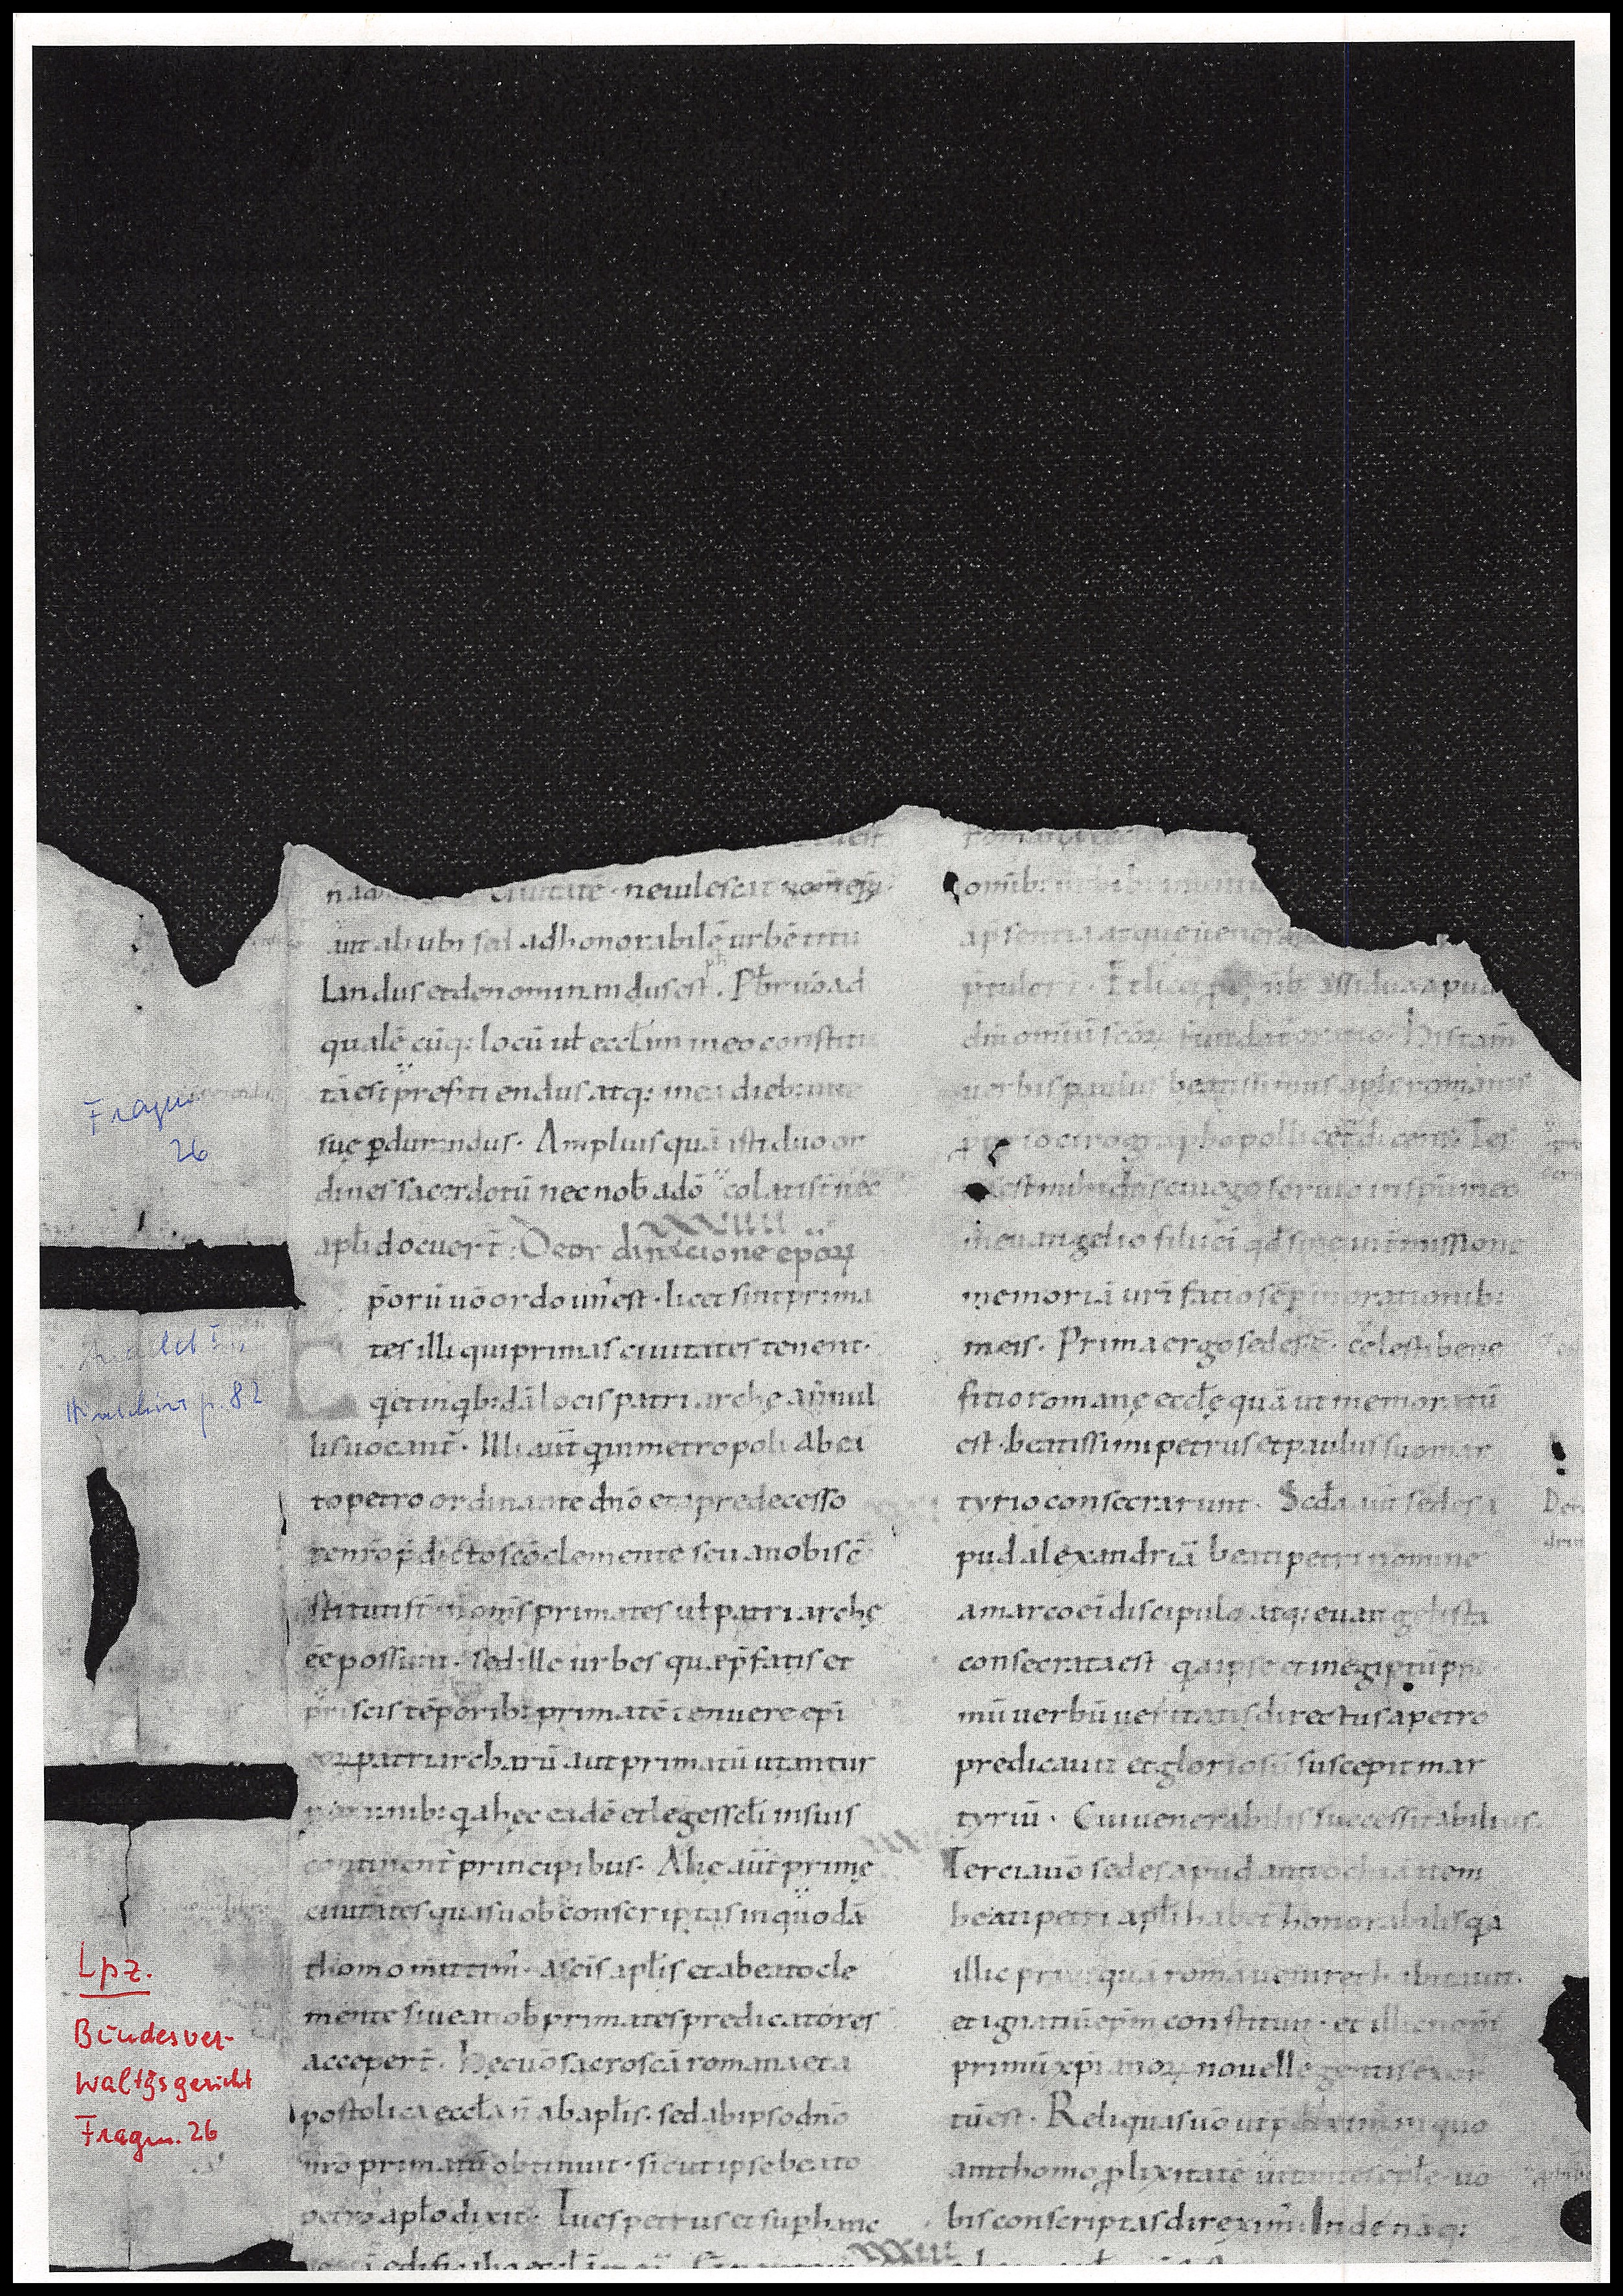 Fragm.
26
p. 82
Lpz.
Bundesver-
waltgsgericht
Fragm. 26
ciuitatē · neuilescat nom̄ ep̄i·
aut alicubi sed ad honorabilē urbē titu
landus et denominandus est. Pbr̄ uō ad
qualē cūq: locū ut̄ eccl̄im in eo constitu
tā est p̄ficiendus atq: in ea dieb: uite
suę ꝑdurandus. Amplius quā isti duo or
dines sacerdotū nec nob̄ a dō colati st̄ nec
apl̄i docuer̄t: De ordinacione ep̄oꝝ
XXVIIII
ꝑ̄orū uō ordo un̄ est · licet sint prima
tes illi qui primas ciuitates tenent.
q̨ et in q̨b:dā locis patriarchę a nonnul
lis uocant̄. Illi aūt q̨ in metropoli a bea
to petro ordinante dn̄o et a predecesso
re n̄ro p̄dicto scō clemente seu a nobis cō
stituti st̄ n̄ om̄s primates ut̄ patriarchę
eē possunt. sed ille urbes quę p̄fatis et
priscis tēporib: primatē tenuere ep̄i
eoꝝ patriarcharū aut primatū utantur
nominib: q̨a hęc eadē et leges sc̄li in suis
continent̄ principibus. Alię aūt primę
ciuitates quas uob̄ conscriptas in quodā
thomo mittim̄. a sc̄is apl̄is et a beato cle
mente siue a nob̄ primates predicatores
acceper̄t. Hęc uō sacrosc̄a romana et a
postolica eccl̄a n̄ ab apl̄is. sed ab ipso dn̄o
n̄ro primatū obtinuit · sicut ipse beato
petro apl̄o dixit. Tu es petrus et sup̄ hanc
petrā edificabo eccl̄am
omib:
apsentia atque uenera
ptulert. Et licet ꝑ om̄ib: assidua apud
dn̄m omiū sc̄oꝝ fundat̄ oratio. His tam̄
uerbis paulus beatissimus apl̄s romanis
proprio cirographo pollicet̄ dicens. Tes
tis est mihi ds̄ cui ego seruio in sp̄u meo
in euangelio filii ei q̄d sine intmissione
memoriā uri facio sēp in orationib:
meis. Prima ergo sedes ē cęlesti bene
fitio romanę eccl̄ę quā ut memoratū
est · beatissimi petrus et paulus suo mar
tyrio consecrarunt. Sc̄da aūt sedes a
pud alexandriā beati petri nomine
a marco ei discipulo atq: euangelista
consecrata est q̨a ipse et in egiptū pri
mū uerbū ueritatis directus a petro
predicauit et gloriosū suscepit mar
tyriū. Cui uenerabilis successit abilius.
Tercia uō sedes apud antiochiā item
beati petri apl̄i habet honorabilis q̨a
illic priusquā romā ueniret habitauit.
et ignatiū ep̄m constituit · et illic nom̄
primū xp̄ianoꝝ nouellę gentis exor
tū est. Reliquas uō ut p̄diximus in quo
dam thomo ꝓlixitatē uitantes epl̄ę · uo
bis conscriptas direxim̄. Inde naq:
XXXIII